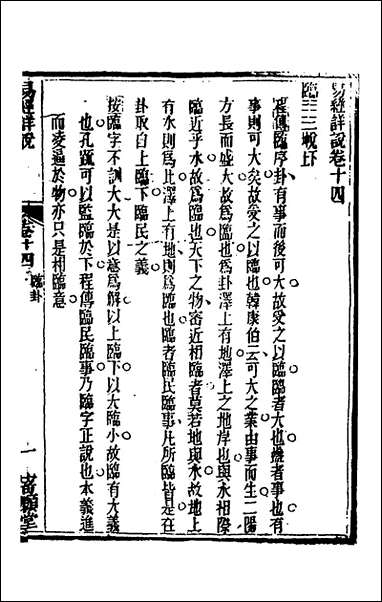 易經詳說卷十四
臨䷒兌下坤上
程傳臨序卦有事而後可大故受之以臨臨者大也蠱者事也有
事則可大矣故受之以臨也韓康伯云可大之業由事而生二陽
方長而盛大故爲臨也爲卦澤上有地澤上之地岸也與水相際
臨近乎水故爲臨也天下之物密近相臨者莫若地與水故地上
有水則爲比澤上有地則爲臨也臨者臨民臨事凡所臨皆是在
卦取自上臨下臨民之義
按臨字不訓大大是以意爲解以上臨下以大臨小故臨有大義
也孔疏可以監臨於下程傳臨民臨事乃臨字正說也本義進
而凌逼於物亦只是相臨意
易經詳說
卷十四
臨卦
一
寄願堂